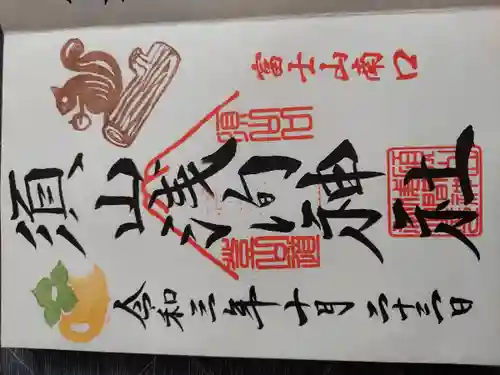 富士山南口
須山浅间神社
令和三年十月二十三日